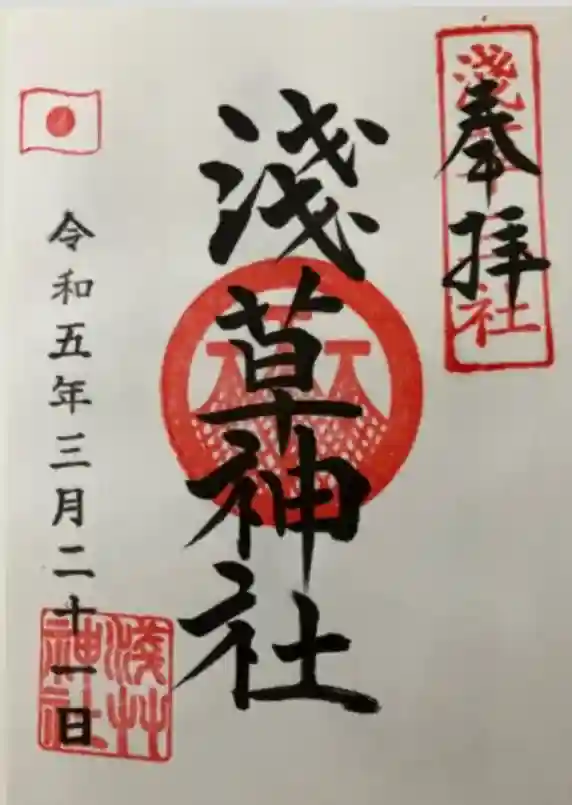 奉拝
淺草神社
淺草神社
令和五年三月二十一日
淺草神社